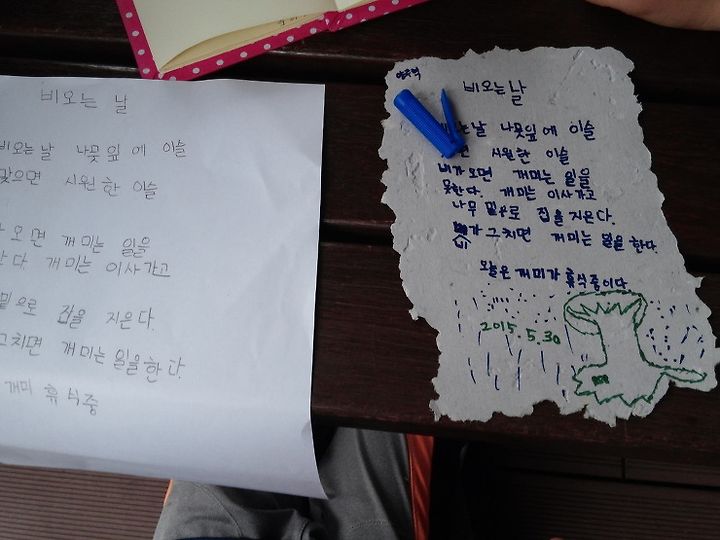 비오는 날
비오는 날 나뭇잎에 이슬
맞으면 시원한 이슬
오면 개미는 일을
한다. 개미는 이사가고
밑으로 집을 지은다.
그치면 개미는 일을 한다.
개미 휴식중
비오는 날
는 날 나뭇잎에 이슬
면 시원한 이슬
비가 오면 개미는 일을
못한다. 개미는 이사가고
나무 밑으로 집을 지은다.
비가 그치면 개미는 일을 한다.
오늘은 개미가 휴식중이다
2015.5.30